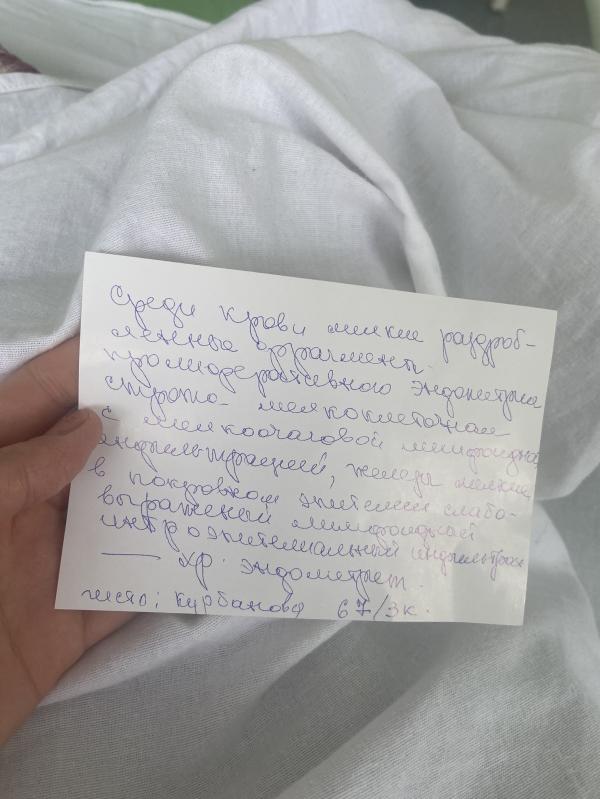 Среди крови мелкие раздроб-
ленные фрагменты
пролиферативного эндометрия
строма - мелкоклеточная
с мелкоочаговой лимфоидной
инфильтрацией, железы мелкие,
в покровном эпителии слабо-
выраженный лимфоидный
интроэпителиальный инфильтрат
— хр. эндометрит.
гисто: Курбанова 67/3к.